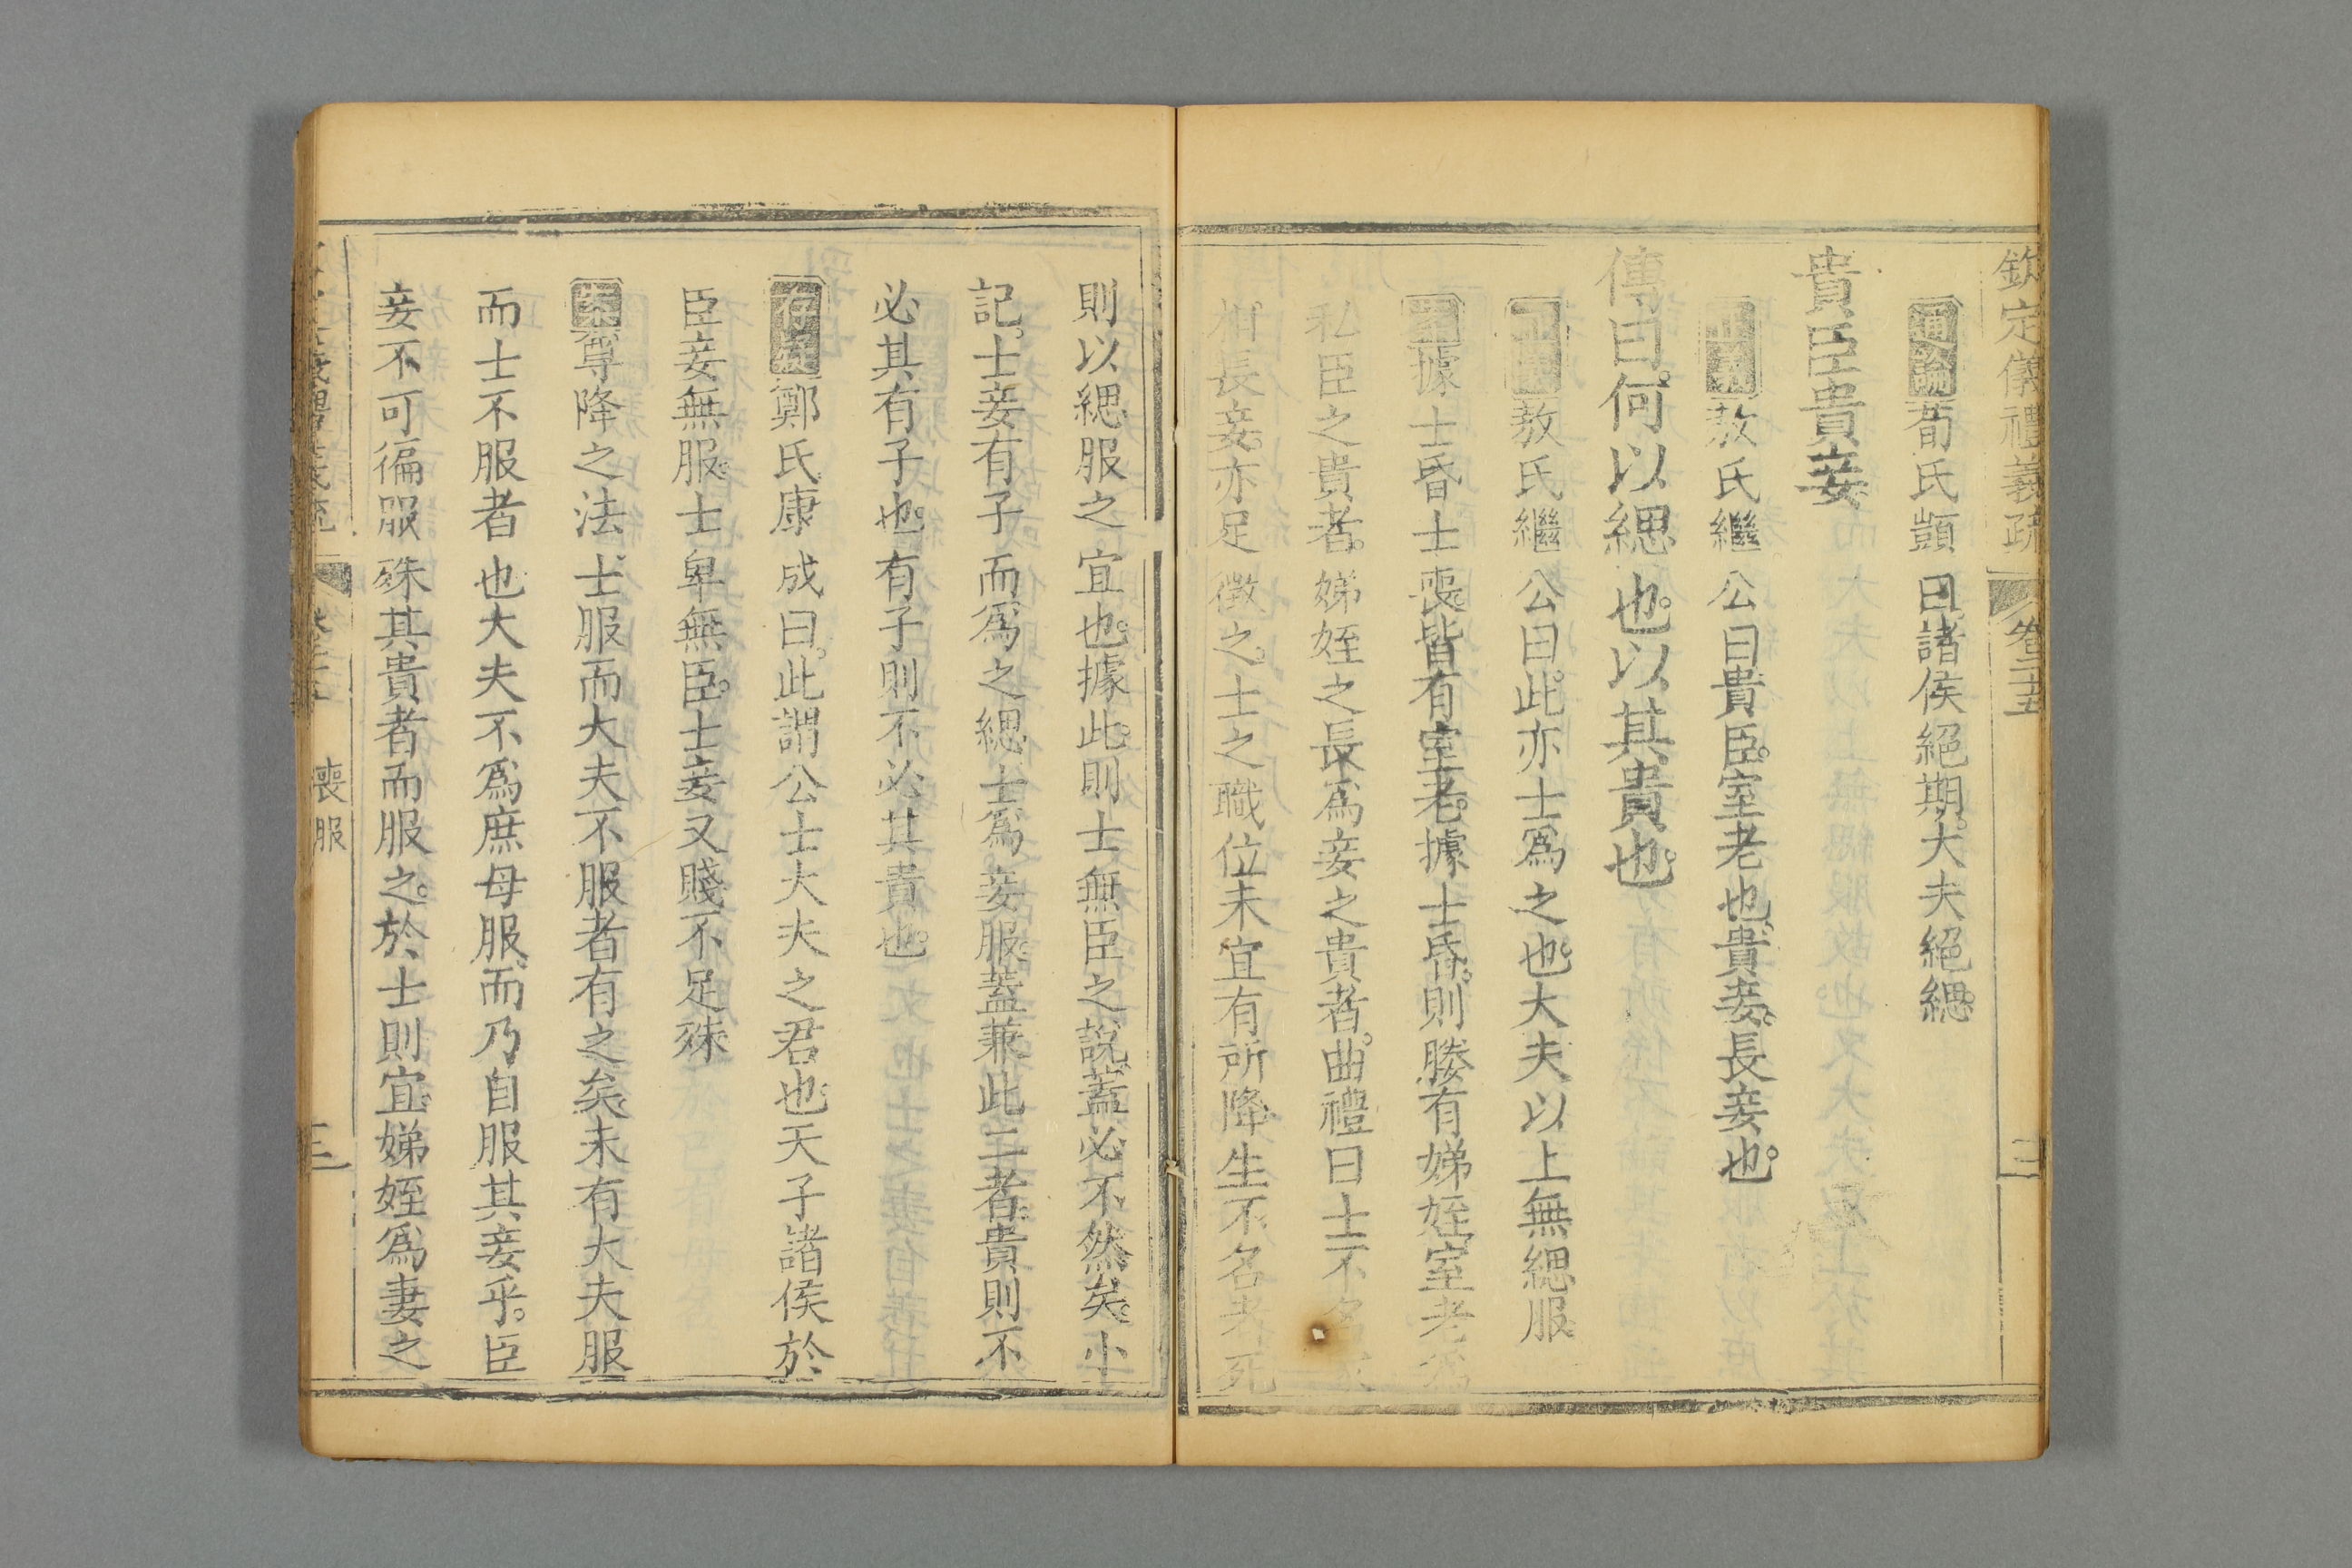 欽定儀禮義疏 卷二十五 二
通論荀氏顗曰諸侯絕期。大夫絕緦。
貴臣貴妾
正義敖氏繼公曰貴臣。室老也。貴妾。長妾也。
傳曰。何以緦也。以其貴也。
正義敖氏繼公曰。此亦士爲之也。大夫以上無緦服
案據士昏士喪。皆有室老。據士昏。則媵有娣姪。室老爲
私臣之貴者。娣姪之長爲妾之貴者。曲禮曰士不名家
相長妾。亦足徵之。士之職位未宜有所降。生不名者。死
則以緦服之宜也。據此。則士無臣之說。蓋必不然矣。小
記。士妾有子而爲之緦。士爲妾服。蓋兼此二者。貴則不
必其有子也。有子則不必其貴也。
存疑鄭氏康成曰。此謂公士大夫之君也。天子諸侯於
臣妾無服。士卑無臣。士妾又賤不足殊
案尊降之法。士服而大夫不服者有之矣。未有大夫服
而士不服者也。大夫不爲庶母服。而乃自服其妾乎。臣
妾不可徧服殊其貴者而服之。於士則宜。娣姪爲妻之
喪服 三